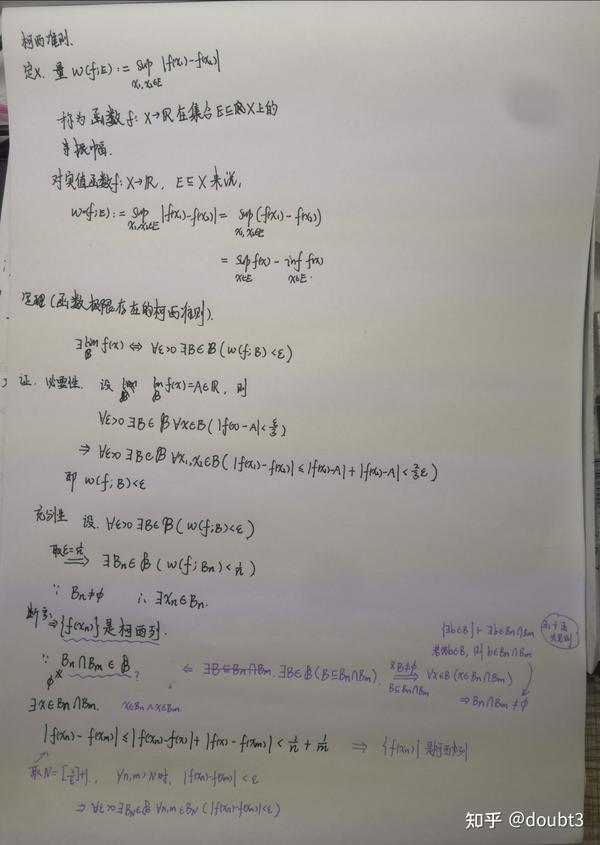 柯西准则.
定义. 量 ω(f;E) := sup_{x₁,x₂∈E} |f(x₁)-f(x₂)|
称为函数 f: X→ℝ 在集合 E⊆X上的
振幅.
对实值函数f: X→ℝ, E⊆X 来说,
ω(f;E) := sup_{x₁,x₂∈E} |f(x₁)-f(x₂)| = sup_{x₁,x₂∈E} (f(x₁)-f(x₂))
= sup_{x∈E} f(x) - inf_{x∈E} f(x).
定理 (函数极限存在的柯西准则).
∃ lim_𝓑 f(x) ⇔ ∀ε>0 ∃B∈𝓑 ( ω(f;B)<ε )
证. 必要性. 设 lim_𝓑 f(x)=A∈ℝ, 则
∀ε>0 ∃B∈𝓑 ∀x∈B ( |f(x)-A|<ε/3 )
⇒ ∀ε>0 ∃B∈𝓑 ∀x₁,x₂∈B ( |f(x₁)-f(x₂)| ≤ |f(x₁)-A| + |f(x₂)-A| < 2/3 ε )
即 ω(f;B)<ε
充分性 设. ∀ε>0 ∃B∈𝓑 ( ω(f;B)<ε )
取ε=1/n ⇒ ∃Bₙ∈𝓑 ( ω(f;Bₙ)<1/n )
∵ Bₙ≠∅ ∴ ∃xₙ∈Bₙ.
断言: ⇒ {f(xₙ)}是柯西列.
{∃b∈B} + ∃b∈Bₙ∩Bₘ
若b∈B, 则 b∈Bₙ∩Bₘ
∵ Bₙ∩Bₘ∈𝓑 ? ⇐ ∃B∈𝓑 (B⊆Bₙ∩Bₘ). ⇒ (又B≠∅, B⊆Bₙ∩Bₘ) ∀x∈B (x∈Bₙ∩Bₘ)
⇒ Bₙ∩Bₘ≠∅
∃x∈Bₙ∩Bₘ. x∈Bₙ∧x∈Bₘ
|f(xₙ)-f(xₘ)| ≤ |f(xₙ)-f(x)| + |f(x)-f(xₘ)| < 1/n + 1/m ⇒ {f(xₙ)} 是柯西列
取N=[2/ε]+1, ∀n,m>N时, |f(xₙ)-f(xₘ)|<ε
⇒ ∀ε>0 ∃Bₙ∈𝓑 ∀n,m∈Bₙ ( |f(xₙ)-f(xₘ)|<ε )
知乎 @doubt3